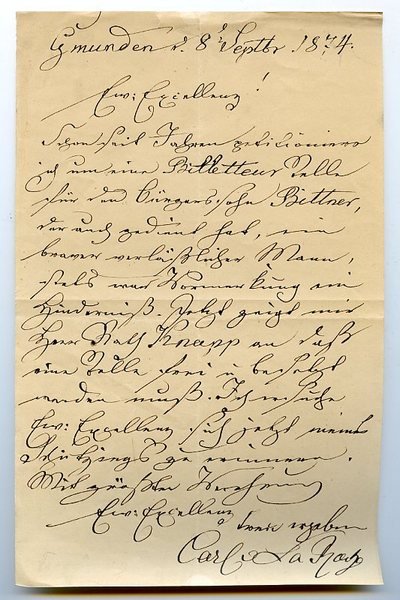 Gmunden d. 8t Septbr 1874.
Ew: Excellenz!
Schon seit Jahren petitioniere
ich um eine Billetteur Stelle
für den Bürgerssohn Bittner,
der auch gedient hat, ein
braver verläßlicher Mann,
stets war Vormerkung ein
Hinderniß. Jetzt zeigt mir
Herr Rath Knapp an daß
eine Stelle frei u besetzt
werden muß. Ich ersuche
Ew: Excellenz sich jetzt meines
Schützlings zu erinnern.
Mit größter Verehrung
Ew: Excellenz
ergeben
Carl La Roche